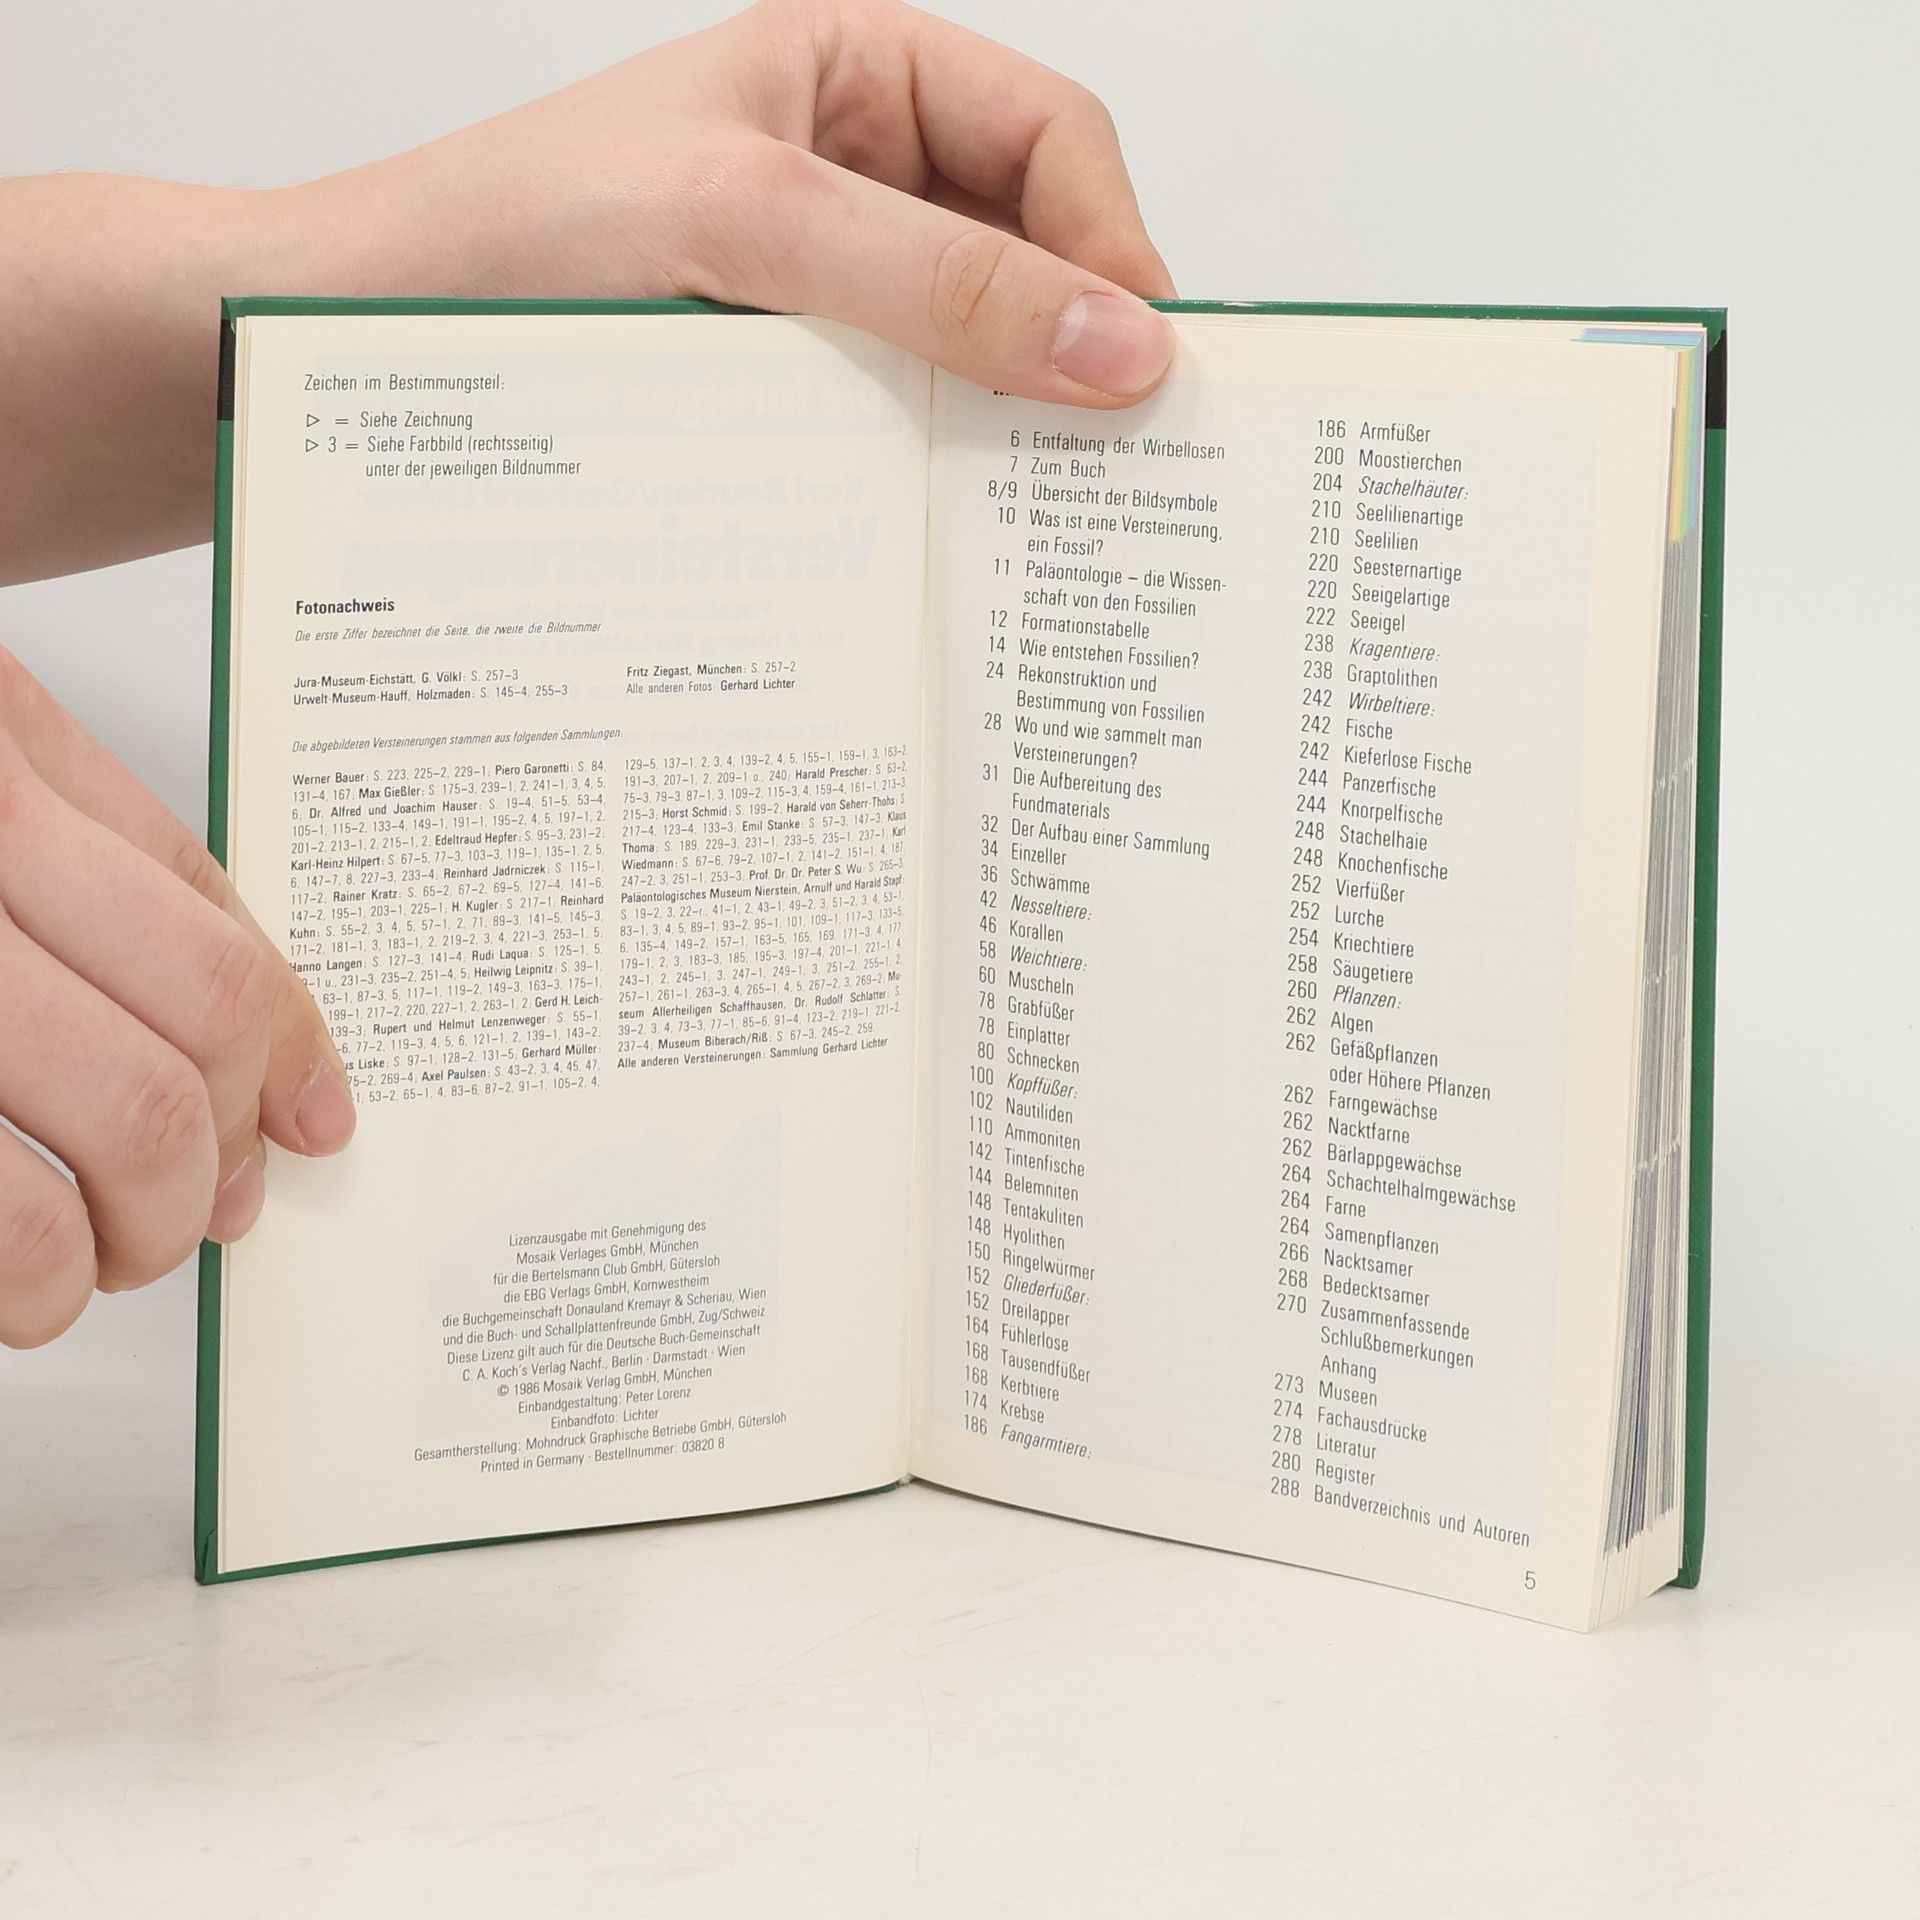 Zeichen im Bestimmungsteil:
▷ = Siehe Zeichnung
▷ 3 = Siehe Farbbild (rechtsseitig)
unter der jeweiligen Bildnummer
Fotonachweis
Die erste Ziffer bezeichnet die Seite, die zweite die Bildnummer
Jura-Museum-Eichstätt, G. Völkl: S. 257–3
Urwelt-Museum-Hauff, Holzmaden: S. 145–4, 255–3
Fritz Ziegast, München: S. 257–2
Alle anderen Fotos: Gerhard Lichter
Die abgebildeten Versteinerungen stammen aus folgenden Sammlungen:
Werner Bauer: S. 223, 225–2, 229–1; Piero Garonetti: S. 84,
131–4, 167; Max Gießler: S. 175–3, 239–1, 2, 241–1, 3, 4, 5,
6; Dr. Alfred und Joachim Hauser: S. 19–4, 51–5, 53–4,
105–1, 115–2, 133–4, 149–1, 191–1, 195–2, 4, 5, 197–1, 2,
201–2, 213–1, 2, 215–1, 2; Edeltraud Hepfer: S. 95–3, 231–2;
Karl-Heinz Hilpert: S. 67–5, 77–3, 103–3, 119–1, 135–1, 2, 5,
6, 147–7, 8, 227–3, 233–4; Reinhard Jadrniczek: S. 115–1,
117–2; Rainer Kratz: S. 65–2, 67–2, 69–5, 127–4, 141–6,
147–2, 195–1, 203–1, 225–1; H. Kugler: S. 217–1; Reinhard
Kuhn: S. 55–2, 3, 4, 5, 57–1, 2, 71, 89–3, 141–5, 145–3,
171–2, 181–1, 3, 183–1, 2, 219–2, 3, 4, 221–3, 253–1, 5;
Hanno Langen: S. 127–3, 141–4; Rudi Laqua: S. 125–1, 5,
–1 u., 231–3, 235–2, 251–4, 5; Heilwig Leipnitz: S. 39–1,
63–1, 87–3, 5, 117–1, 119–2, 149–3, 163–3, 175–1,
199–1, 217–2, 220, 227–1, 2, 263–1, 2; Gerd H. Leich-
139–3; Rupert und Helmut Lenzenweger: S. 55–1,
–6, 77–2, 119–3, 4, 5, 6, 121–1, 2, 139–1, 143–2;
us Liske: S. 97–1, 128–2, 131–5; Gerhard Müller:
75–2, 269–4; Axel Paulsen: S. 43–2, 3, 4, 45, 47,
1, 53–2, 65–1, 4, 83–6, 87–2, 91–1, 105–2, 4,
129–5, 137–1, 2, 3, 4, 139–2, 4, 5, 155–1, 159–1, 3, 163–2,
191–3, 207–1, 2, 209–1 o., 240; Harald Prescher: S. 63–2,
75–3, 79–3, 87–1, 3, 109–2, 115–3, 4, 159–4, 161–1, 213–3,
215–3; Horst Schmid: S. 199–2; Harald von Seherr-Thohs: S.
217–4, 123–4, 133–3; Emil Stanke: S. 57–3, 147–3; Klaus
Thoma: S. 189, 229–3, 231–1, 233–5, 235–1, 237–1; Karl
Wiedmann: S. 67–6, 79–2, 107–1, 2, 141–2, 151–1, 4, 187,
247–2, 3, 251–1, 253–3; Prof. Dr. Dr. Peter S. Wu: S. 265–3;
Paläontologisches Museum Nierstein, Arnulf und Harald Stapf:
S. 19–2, 3, 22–r., 41–1, 2, 43–1, 49–2, 3, 51–2, 3, 4, 53–1,
83–1, 3, 4, 5, 89–1, 93–2, 95–1, 101, 109–1, 117–3, 133–5,
6, 135–4, 149–2, 157–1, 163–5, 165, 169, 171–3, 4, 177,
179–1, 2, 3, 183–3, 185, 195–3, 197–4, 201–1, 221–1, 4,
243–1, 2, 245–1, 3, 247–1, 249–1, 3, 251–2, 255–1, 2,
257–1, 261–1, 263–3, 4, 265–1, 4, 5, 267–2, 3, 269–2; Mu-
seum Allerheiligen Schaffhausen, Dr. Rudolf Schlatter: S.
39–2, 3, 4, 73–3, 77–1, 85–6, 91–4, 123–2, 219–1, 221–2,
237–4; Museum Biberach/Riß: S. 67–3, 245–2, 259.
Alle anderen Versteinerungen: Sammlung Gerhard Lichter
Lizenzausgabe mit Genehmigung des
Mosaik Verlages GmbH, München
für die Bertelsmann Club GmbH, Gütersloh
die EBG Verlags GmbH, Kornwestheim
die Buchgemeinschaft Donauland Kremayr & Scheriau, Wien
und die Buch- und Schallplattenfreunde GmbH, Zug/Schweiz
Diese Lizenz gilt auch für die Deutsche Buch-Gemeinschaft
C. A. Koch's Verlag Nachf., Berlin · Darmstadt · Wien
© 1986 Mosaik Verlag GmbH, München
Einbandgestaltung: Peter Lorenz
Einbandfoto: Lichter
Gesamtherstellung: Mohndruck Graphische Betriebe GmbH, Gütersloh
Printed in Germany · Bestellnummer: 03820 8
6 Entfaltung der Wirbellosen
7 Zum Buch
8/9 Übersicht der Bildsymbole
10 Was ist eine Versteinerung,
ein Fossil?
11 Paläontologie – die Wissen-
schaft von den Fossilien
12 Formationstabelle
14 Wie entstehen Fossilien?
24 Rekonstruktion und
Bestimmung von Fossilien
28 Wo und wie sammelt man
Versteinerungen?
31 Die Aufbereitung des
Fundmaterials
32 Der Aufbau einer Sammlung
34 Einzeller
36 Schwämme
42 Nesseltiere:
46 Korallen
58 Weichtiere:
60 Muscheln
78 Grabfüßer
78 Einplatter
80 Schnecken
100 Kopffüßer:
102 Nautiliden
110 Ammoniten
142 Tintenfische
144 Belemniten
148 Tentakuliten
148 Hyolithen
150 Ringelwürmer
152 Gliederfüßer:
152 Dreilapper
164 Fühlerlose
168 Tausendfüßer
168 Kerbtiere
174 Krebse
186 Fangarmtiere:
186 Armfüßer
200 Moostierchen
204 Stachelhäuter:
210 Seelilienartige
210 Seelilien
220 Seesternartige
220 Seeigelartige
222 Seeigel
238 Kragentiere:
238 Graptolithen
242 Wirbeltiere:
242 Fische
242 Kieferlose Fische
244 Panzerfische
244 Knorpelfische
248 Stachelhaie
248 Knochenfische
252 Vierfüßer
252 Lurche
254 Kriechtiere
258 Säugetiere
260 Pflanzen:
262 Algen
262 Gefäßpflanzen
oder Höhere Pflanzen
262 Farngewächse
262 Nacktfarne
262 Bärlappgewächse
264 Schachtelhalmgewächse
264 Farne
264 Samenpflanzen
266 Nacktsamer
268 Bedecktsamer
270 Zusammenfassende
Schlußbemerkungen
Anhang
273 Museen
274 Fachausdrücke
278 Literatur
280 Register
288 Bandverzeichnis und Autoren
5